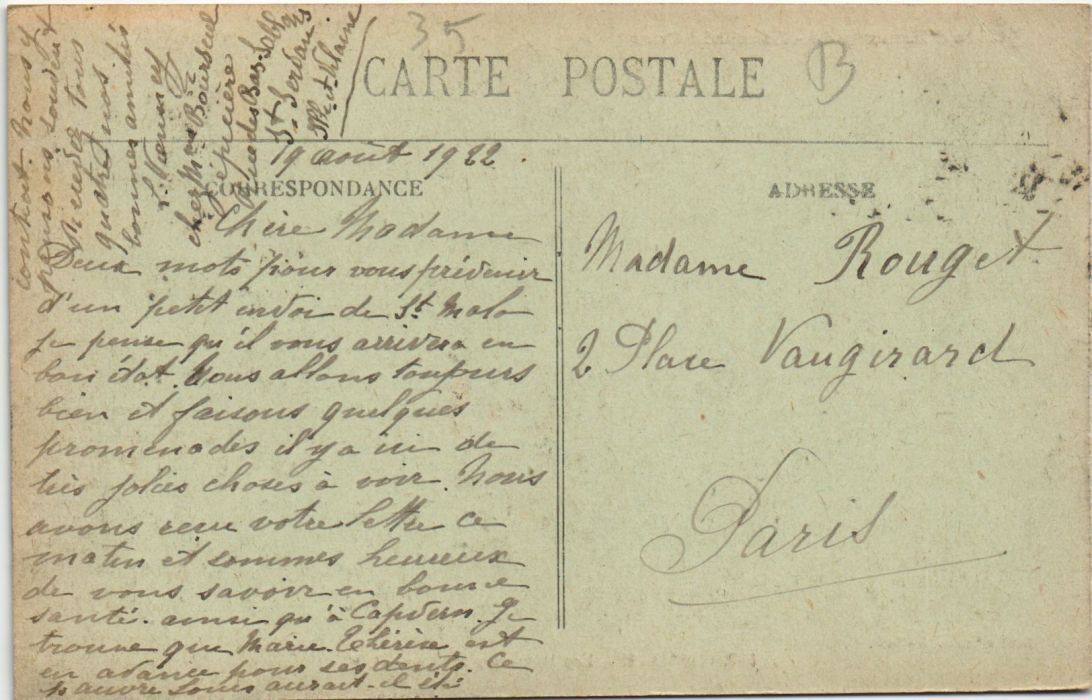 35
CARTE POSTALE
B
19 août 1922
CORRESPONDANCE
Chère Madame
Deux mots pour vous prévenir
d'un petit envoi de St Malo
je pense qu'il vous arrivera en
bon état. Nous allons toujours
bien et faisons quelques
promenades il y a ici de
très jolies choses à voir. Nous
avons reçu votre lettre ce
matin et sommes heureux
de vous savoir en bonne
santé. ainsi qu'à Capvern. Je
trouve que Marie Thérèse est
en avance pour ses dents. Ce
pauvre Louis aurait-il été
content. Nous y
pensons souvent
Recevez tous
quatre nos
bonnes amitiés
chez Mme Bourseul
Rue des Bas Sablons
St Servan
Ille et Vilaine
ADRESSE
Madame Rouget
2 Place Vaugirard
Paris